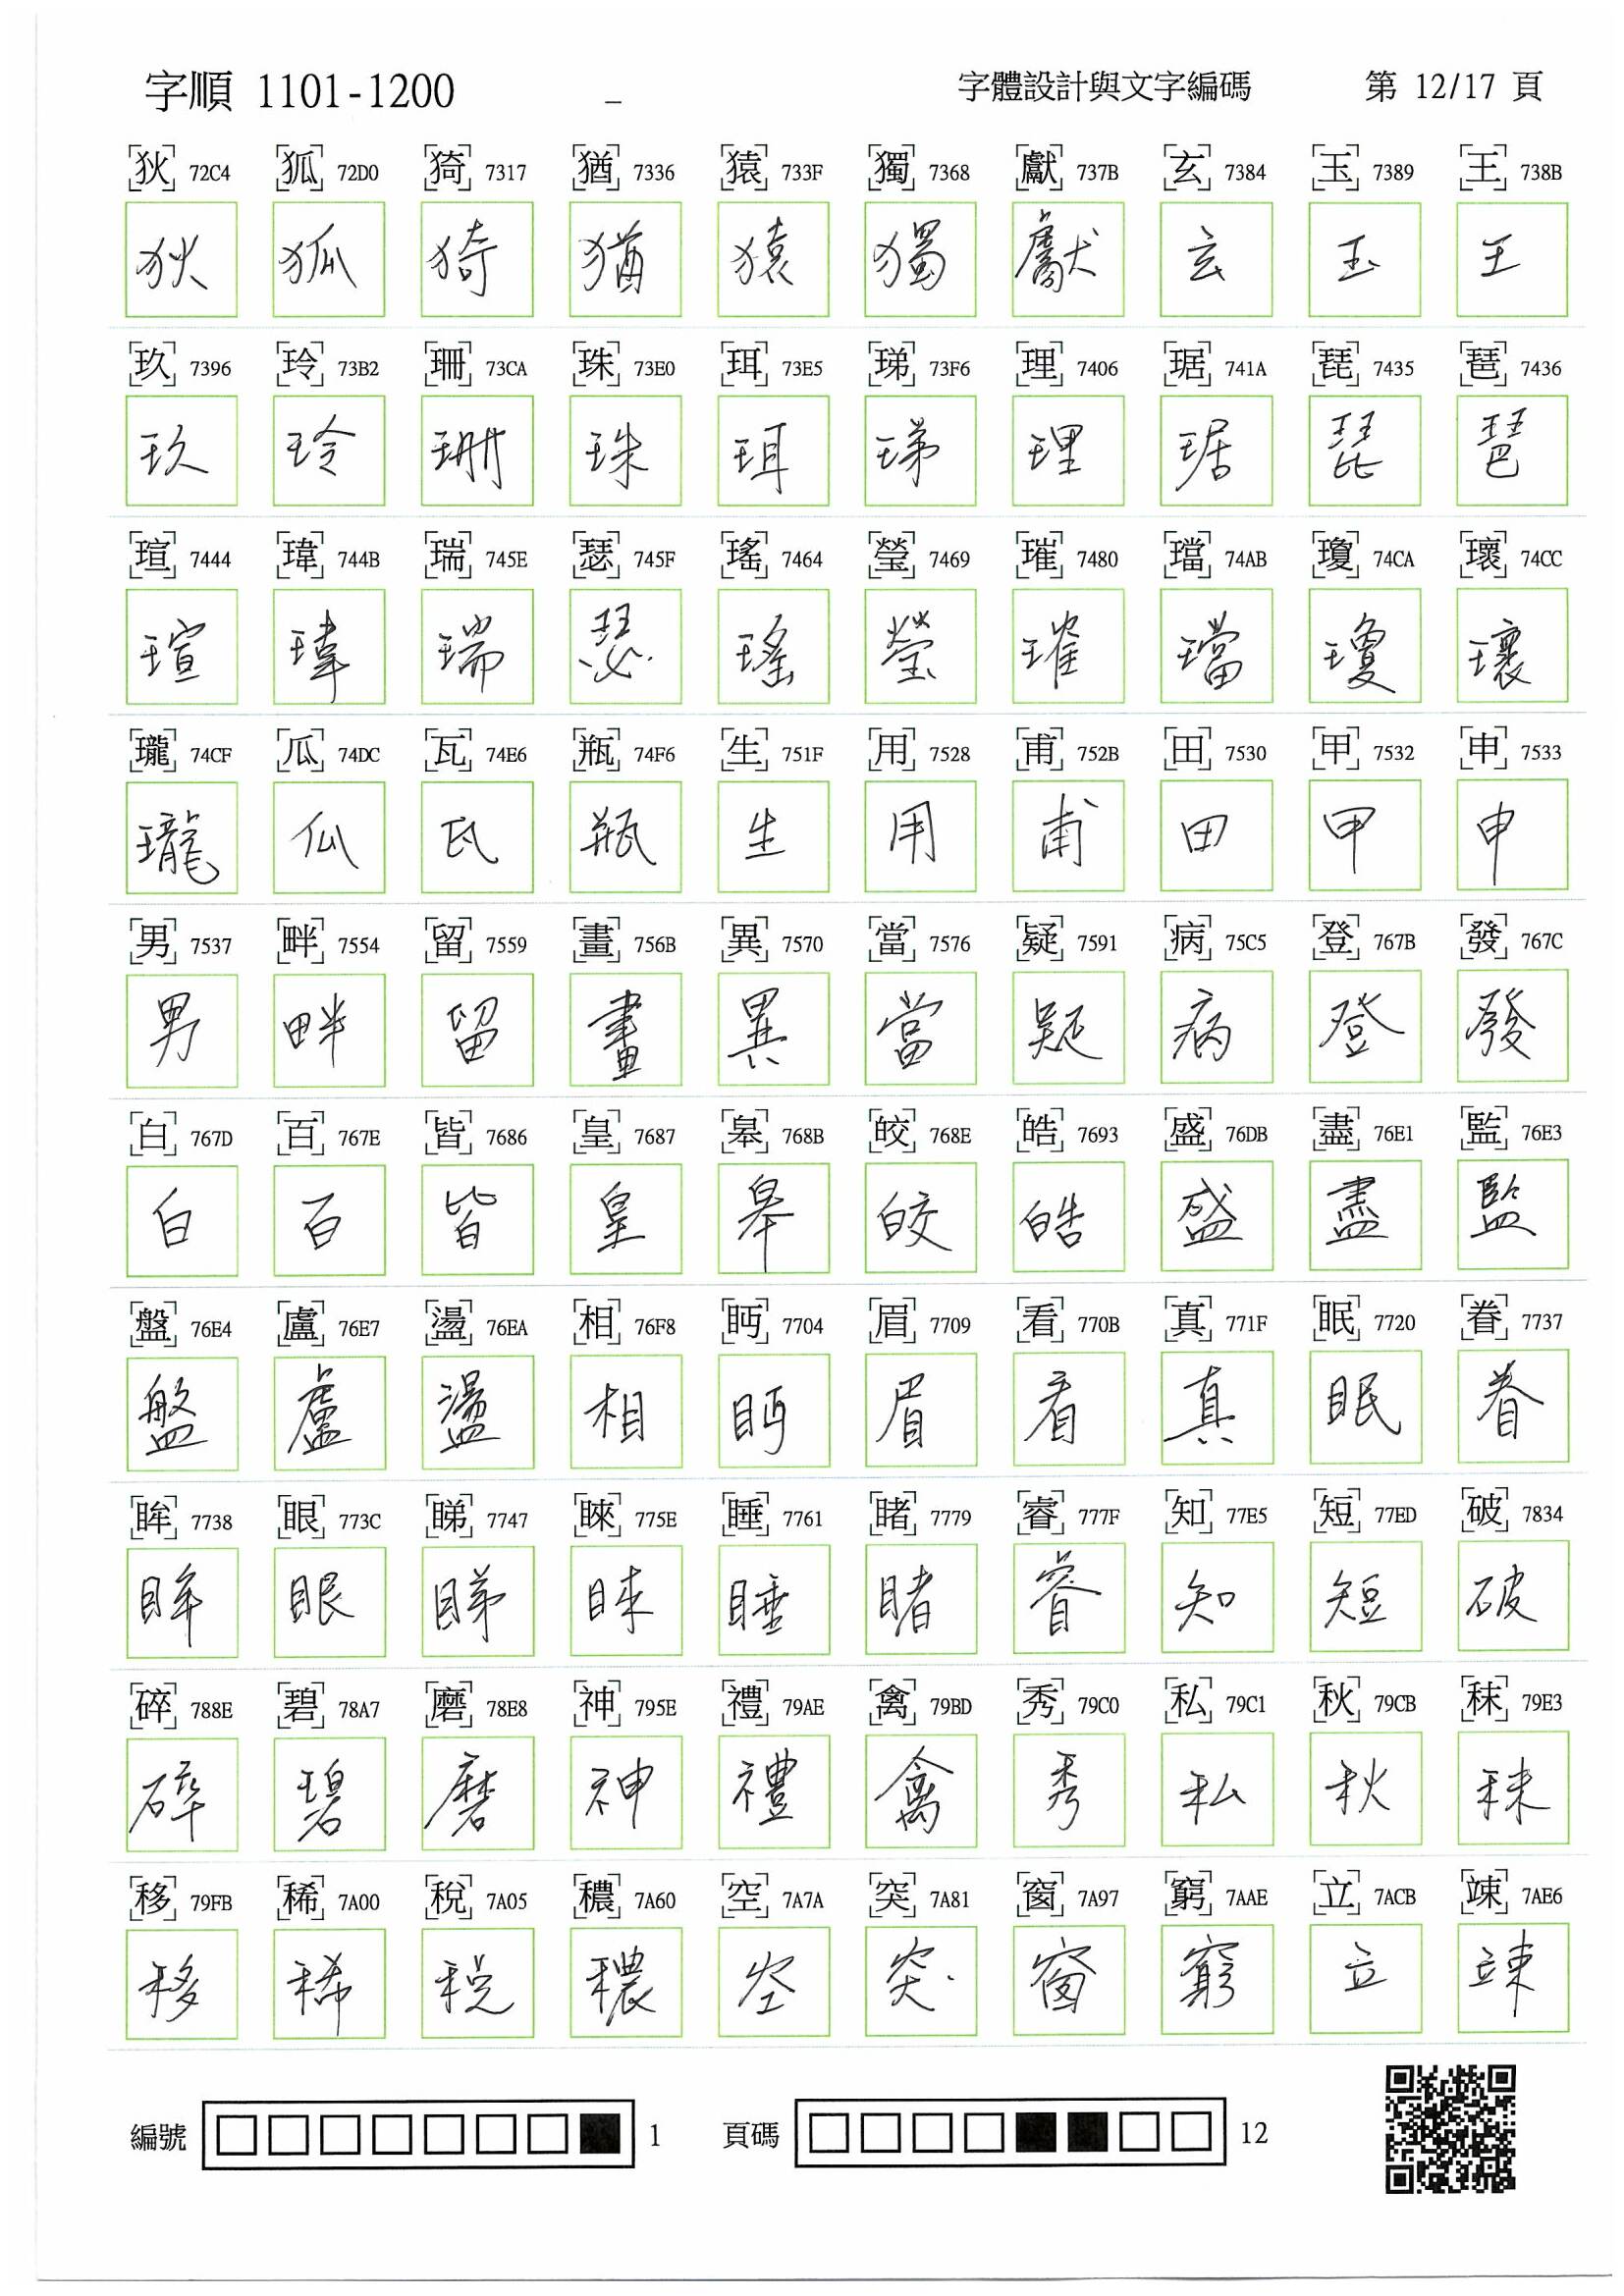 字順 1101-1200 _ 字體設計與文字編碼 第 12/17 頁
狄 72C4 狐 72D0 猗 7317 猶 7336 猿 733F 獨 7368 獻 737B 玄 7384 玉 7389 王 738B
狄 狐 猗 猶 猿 獨 獻 玄 玉 王
玖 7396 玲 73B2 珊 73CA 珠 73E0 珥 73E5 珶 73F6 理 7406 琚 741A 琵 7435 琶 7436
玖 玲 珊 珠 珥 珶 理 琚 琵 琶
瑄 7444 瑋 744B 瑞 745E 瑟 745F 瑤 7464 瑩 7469 璀 7480 璫 74AB 瓊 74CA 瓌 74CC
瑄 瑋 瑞 瑟 瑤 瑩 璀 璫 瓊 瓌
瓏 74CF 瓜 74DC 瓦 74E6 瓶 74F6 生 751F 用 7528 甫 752B 田 7530 甲 7532 申 7533
瓏 瓜 瓦 瓶 生 用 甫 田 甲 申
男 7537 畔 7554 留 7559 畫 756B 異 7570 當 7576 疑 7591 病 75C5 登 767B 發 767C
男 畔 留 畫 異 當 疑 病 登 發
白 767D 百 767E 皆 7686 皇 7687 皋 768B 皎 768E 皓 7693 盛 76DB 盡 76E1 監 76E3
白 百 皆 皇 皋 皎 皓 盛 盡 監
盤 76E4 盧 76E7 盪 76EA 相 76F8 眄 7704 眉 7709 看 770B 真 771F 眠 7720 眷 7737
盤 盧 盪 相 眄 眉 看 真 眠 眷
眸 7738 眼 773C 睇 7747 睞 775E 睡 7761 睹 7779 睿 777F 知 77E5 短 77ED 破 7834
眸 眼 睇 睞 睡 睹 睿 知 短 破
碎 788E 碧 78A7 磨 78E8 神 795E 禮 79AE 禽 79BD 秀 79C0 私 79C1 秋 79CB 秣 79E3
碎 碧 磨 神 禮 禽 秀 私 秋 秣
移 79FB 稀 7A00 稅 7A05 穠 7A60 空 7A7A 突 7A81 窗 7A97 窮 7AAE 立 7ACB 竦 7AE6
移 稀 稅 穠 空 突 窗 窮 立 竦
編號 1 頁碼 12